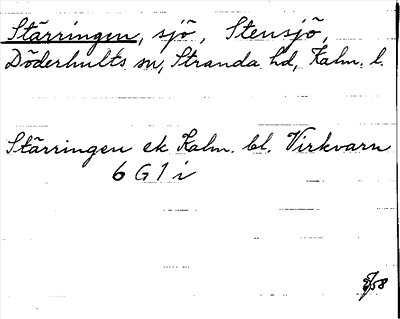 Stärringen, sjö, Stensjö,
Döderhults sn, Stranda hd, Kalm. l.
Stärringen ek Kalm. bl. Virkvarn
6 G 1 i